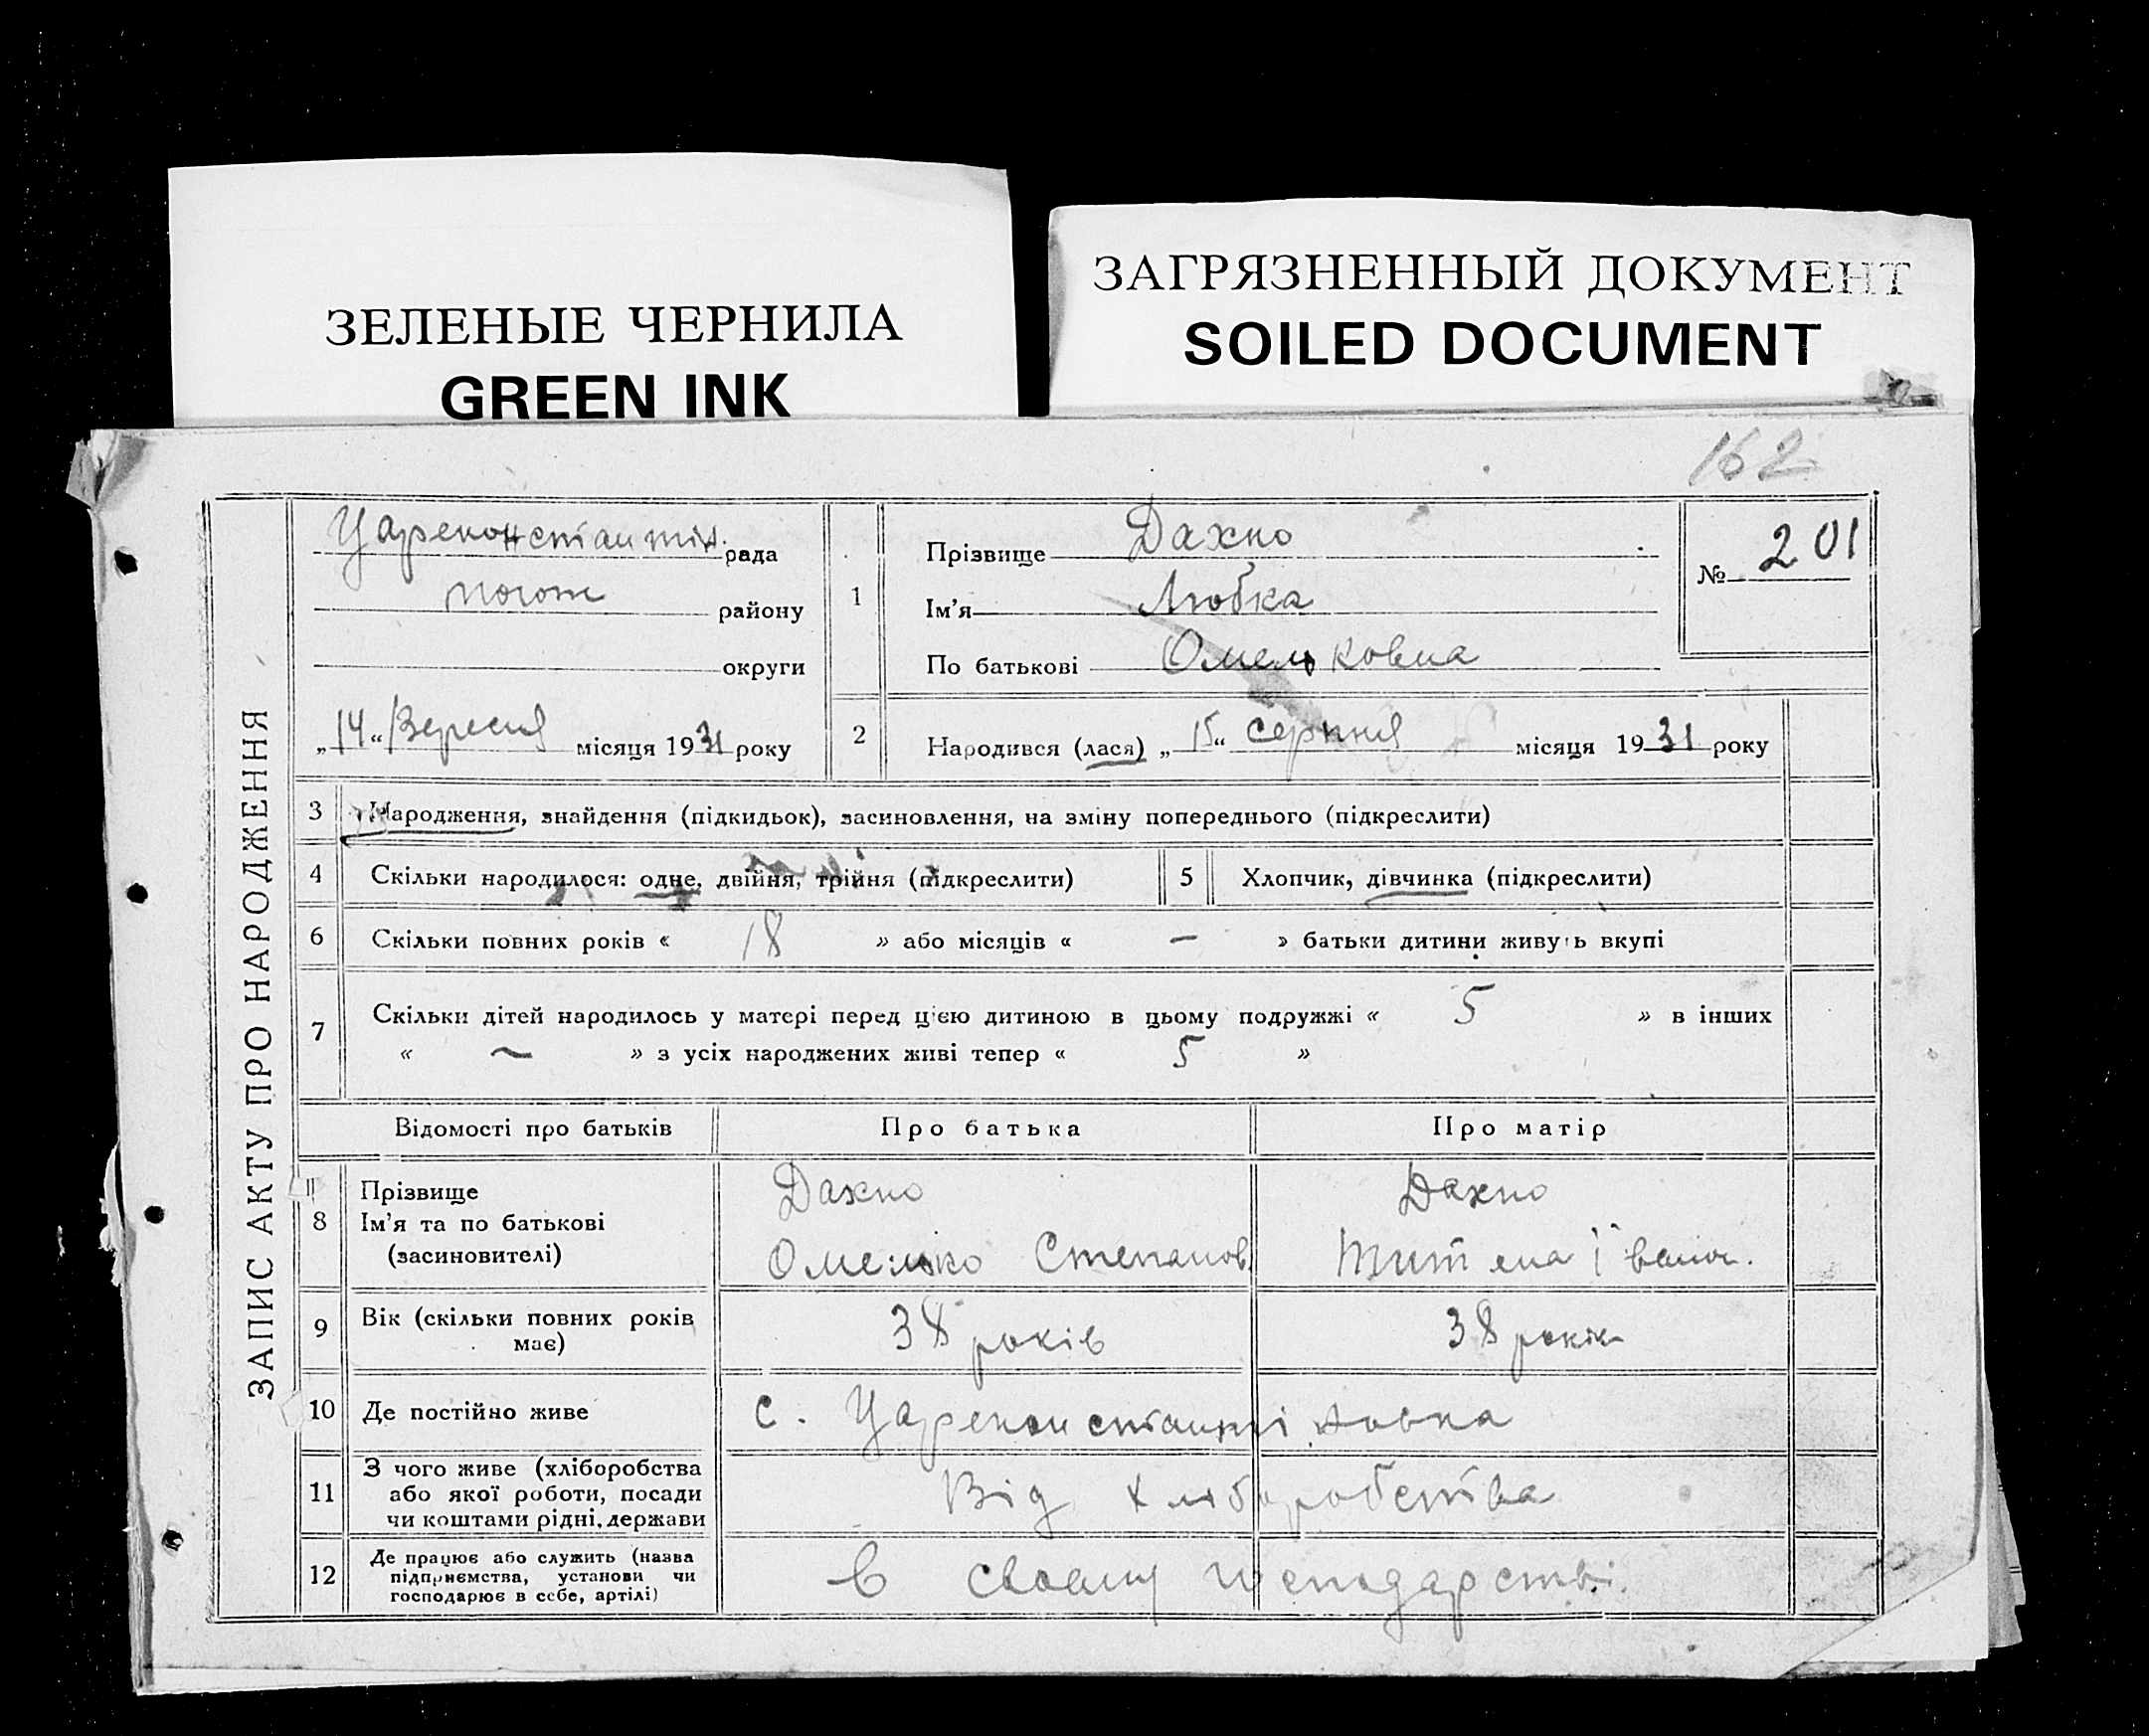 ЗЕЛЕНЫЕ ЧЕРНИЛА
GREEN INK
ЗАГРЯЗНЕННЫЙ ДОКУМЕНТ
SOILED DOCUMENT
162
ЗАПИС АКТУ ПРО НАРОДЖЕННЯ
Цареконстантин. рада
району
округи
„14“ Вересня місяця 1931 року
1
Прізвище Дахно
Ім'я Любка
По батькові Омельковна
№ 201
2 Народився (лася) „15“ серпня місяця 1931 року
3 Народження, знайдення (підкидьок), засиновлення, на зміну попереднього (підкреслити)
4 Скільки народилося: одне, двійня, трійня (підкреслити)
5 Хлопчик, дівчинка (підкреслити)
6 Скільки повних років « 18 » або місяців « — » батьки дитини живуть вкупі
7 Скільки дітей народилось у матері перед цією дитиною в цьому подружжі « 5 » в інших
« — » з усіх народжених живі тепер « 5 »
Відомості про батьків Про батька Про матір
8 Прізвище Дахно Дахно
Ім'я та по батькові
(засиновителі) Омелько Степанов
9 Вік (скільки повних років має) 38 років 38 років
10 Де постійно живе с. Цареконстантіновка
11 З чого живе (хліборобства
або якої роботи, посади
чи коштами рідні, держави Від хліборобства
12 Де працює або служить (назва
підприємства, установи чи
господарює в себе, артілі) в своему